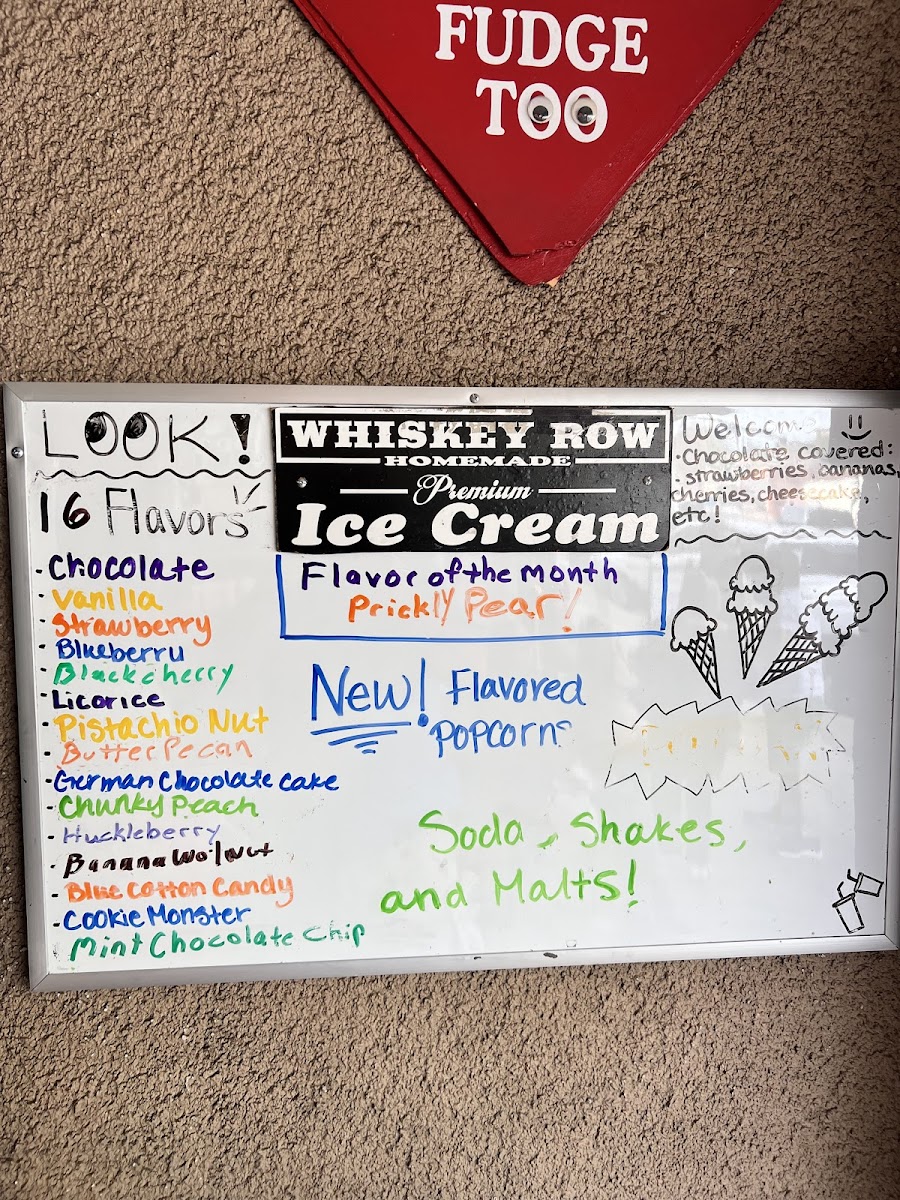 FUDGE
TOO
LOOK!
16 Flavors
· Chocolate
· Vanilla
· Strawberry
· Blueberry
· Black cherry
· Licorice
· Pistachio Nut
· Butter Pecan
· German Chocolate Cake
· Chunky Peach
· Huckleberry
· Banana Walnut
· Blue Cotton Candy
· Cookie Monster
Mint Chocolate Chip
WHISKEY ROW
HOMEMADE
Premium
Ice Cream
Flavor of the month
Prickly Pear!
New! Flavored
Popcorn
Soda, Shakes,
and Malts!
Welcome
· Chocolate covered:
· strawberries, bananas,
cherries, cheesecake,
etc!